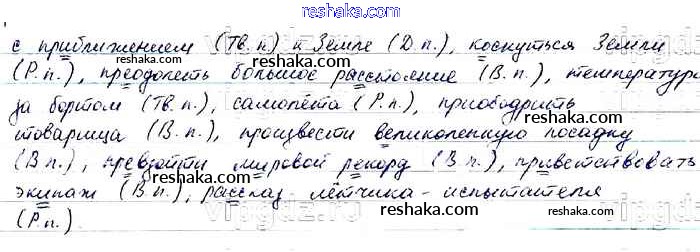 reshaka.com
с приближением (Тв.п.) к Земле (Д.п.), коснуться Земли
(Р.п.), преодолеть большое расстояние (В.п.), температура
за бортом (Тв.п.), самолёта (Р.п.), приободрить
товарища (В.п.), произвести великолепную посадку
(В.п.), превзойти мировой рекорд (В.п.), приветствовать
экипаж (В.п.), рассказ лётчика-испытателя
(Р.п.)
reshaka.com